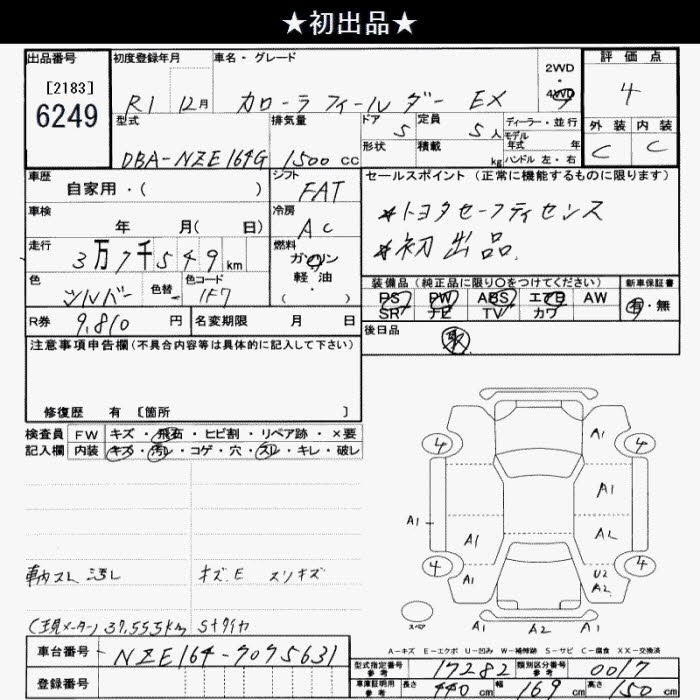 ★初出品★
出品番号 初度登録年月 車名・グレード 2WD・4WD 評価点
[2183] 6249 R1 12月 カローラフィールダー EX 4
型式 排気量 ドア 5 定員 5人 ディーラー・並行 外装 内装
DBA-NZE164G 1500cc 形状 積載 kg モデル年式 年 ハンドル 左・右 C C
車歴 自家用・( ) シフト FAT セールスポイント(正常に機能するものに限ります)
車検 年 月( 日) 冷房 AC *トヨタセーフティセンス
走行 3万7千549km 燃料 ガソリン・軽油・( ) *初出品.
色 シルバー 色替 色コード 1F7 装備品(純正品に限り○をつけてください) 新車保証書
PS PW ABS エアB AW 有・無
SR ナビ TV カワ
R券 9,810円 名変期限 月 日 後日品 取
注意事項申告欄(不具合内容等は具体的に記入して下さい)
修復歴 有 [箇所 ]
検査員 FW キズ・飛石・ヒビ割・リペア跡・×要
記入欄 内装 キズ・汚レ・コゲ・穴・スレ・キレ・破レ
A1
4 4
A1
A1 A1 A2
4 4
A1 U2
A2
スペア A1 A2 A1
車内スレ 汚レ キズ.E スリキズ
(現メーター) 37,555km Sタイヤ
A-キズ E-エクボ U-凹み W-補修跡 S-サビ C-腐食 XX-交換済
車台番号 NZE164-7075631
登録番号
型式指定番号 参考 17282 類別区分番号 参考 0017
車庫証明用 参考 長さ 440cm 幅 169cm 高さ 150cm